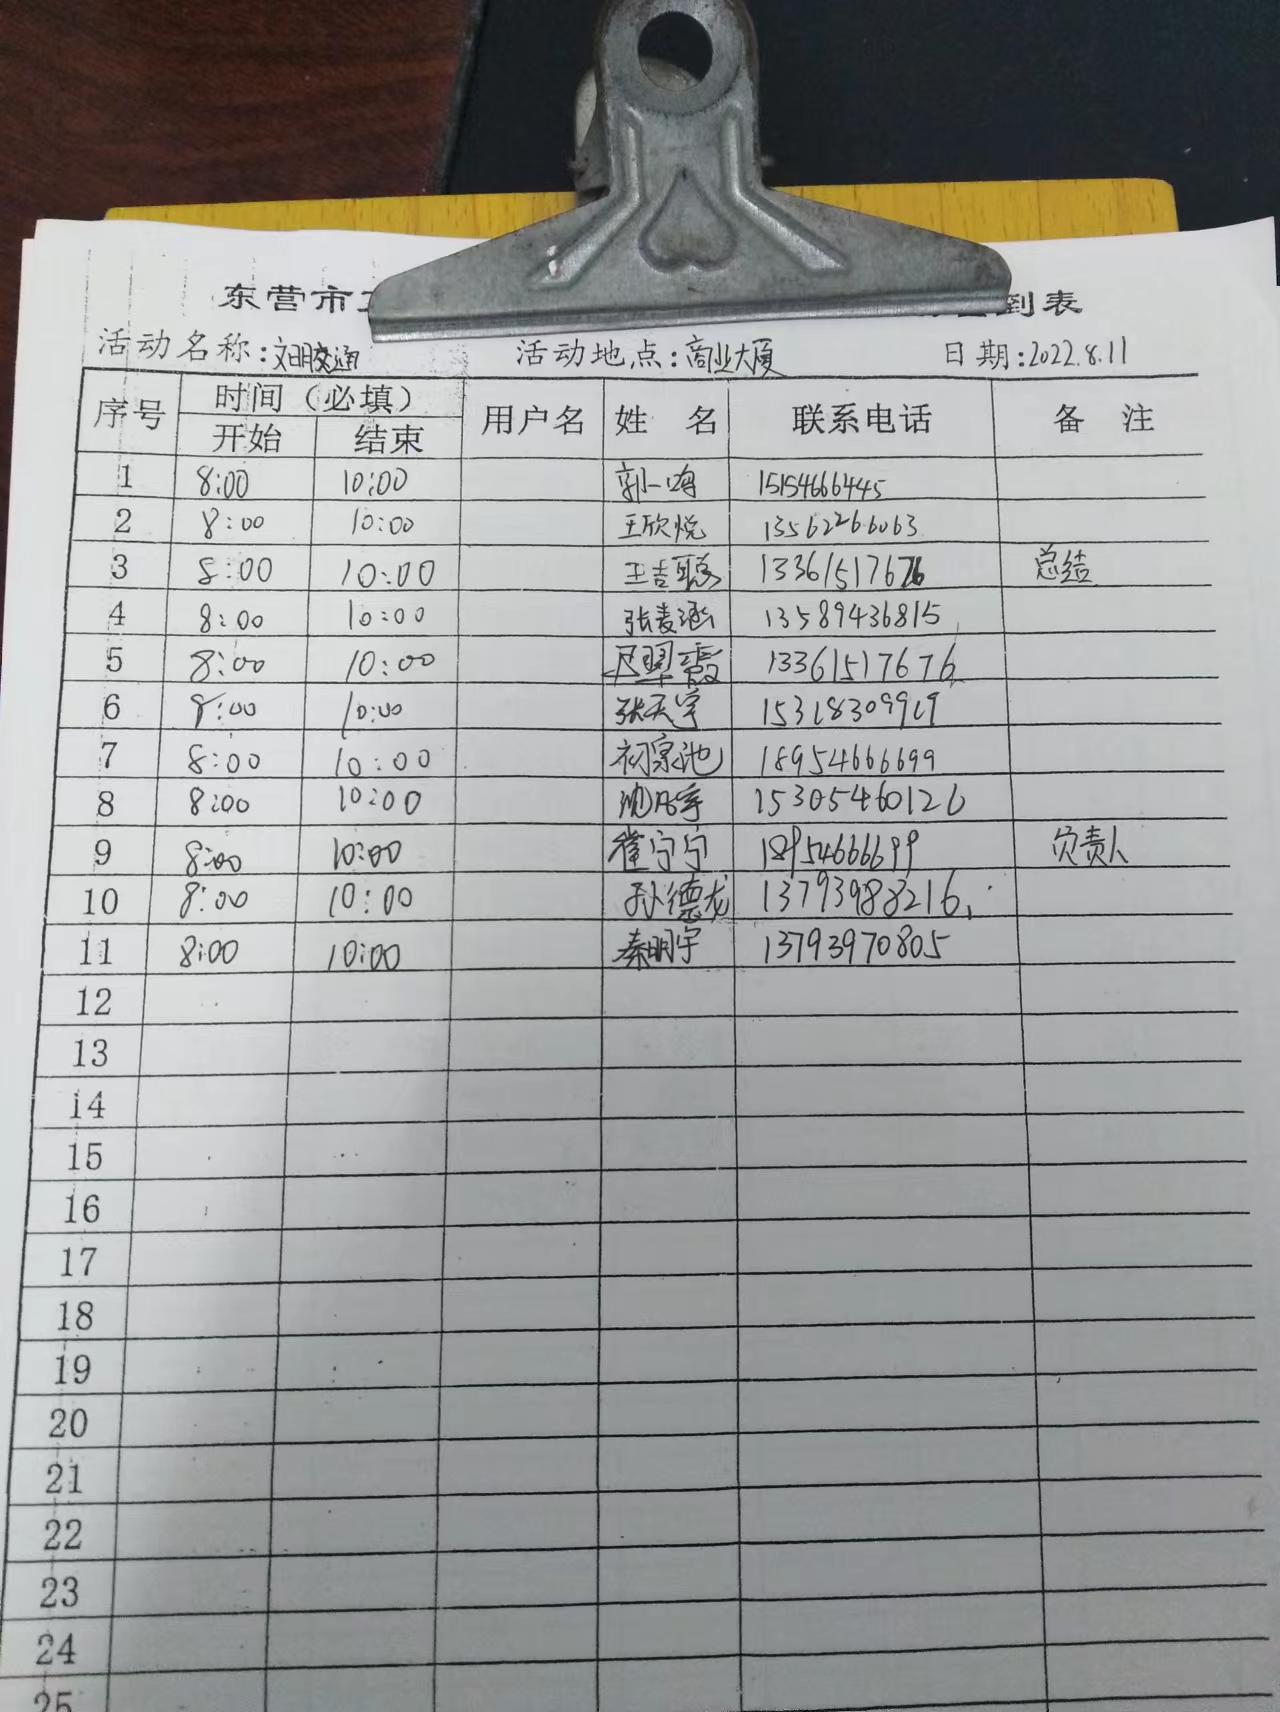 东营市 到表
活动名称:文明交通 活动地点:商业大厦 日期:2022.8.11
序号 时间(必填) 用户名 姓 名 联系电话 备 注
开始 结束
1 8:00 10:00 郭一鸣 15154666445
2 8:00 10:00 王欣悦 13562266063
3 8:00 10:00 王吉聪 13361517676 总结
4 8:00 10:00 张麦涵 13589436815
5 8:00 10:00 尺翠霞 13361517676
6 8:00 10:00 张天宇 15318309919
7 8:00 10:00 初泉池 18954666699
8 8:00 10:00 15305460126
9 8:00 10:00 崔宁宁 18954666699 负责人
10 8:00 10:00 孙德龙 13793988216
11 8:00 10:00 秦明宇 13793970805
12
13
14
15
16
17
18
19
20
21
22
23
24
25